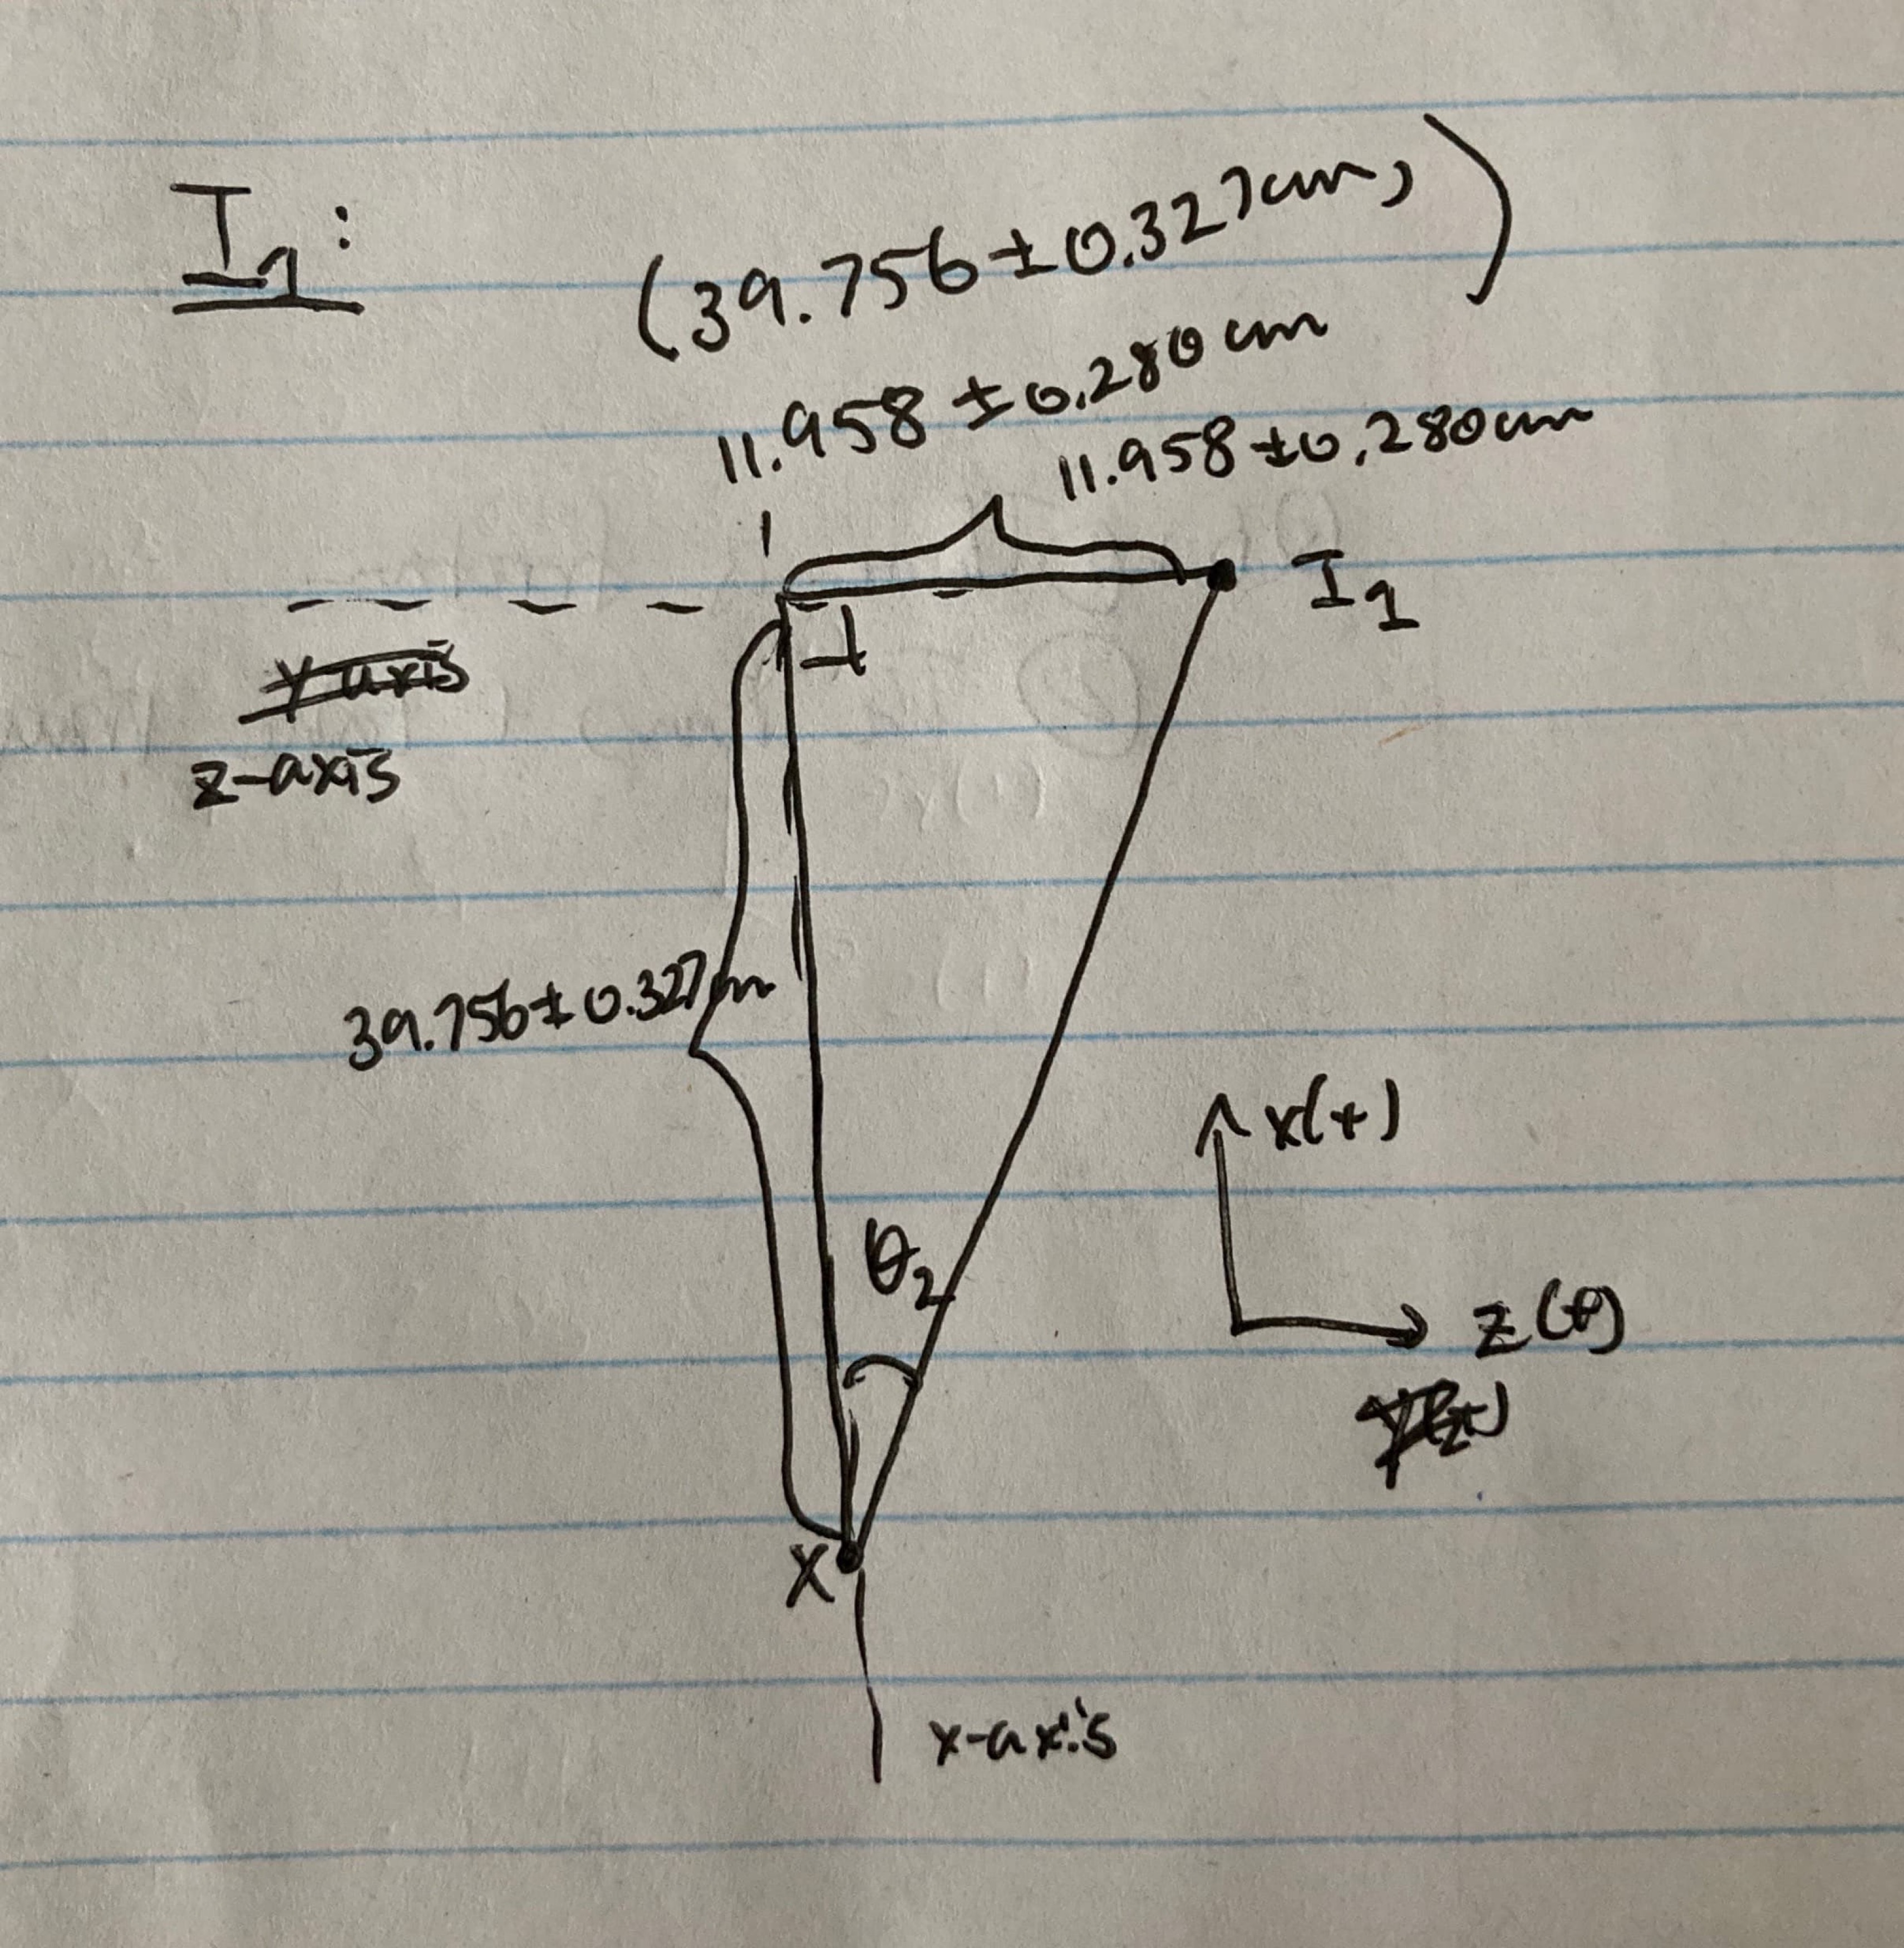 I1:
(39.756 ± 0.327cm,
11.958 ± 0.280cm)
11.958 ± 0.280cm
I1
z-axis
39.756 ± 0.327cm
x(+)
θ2
z(+)
X
x-axis